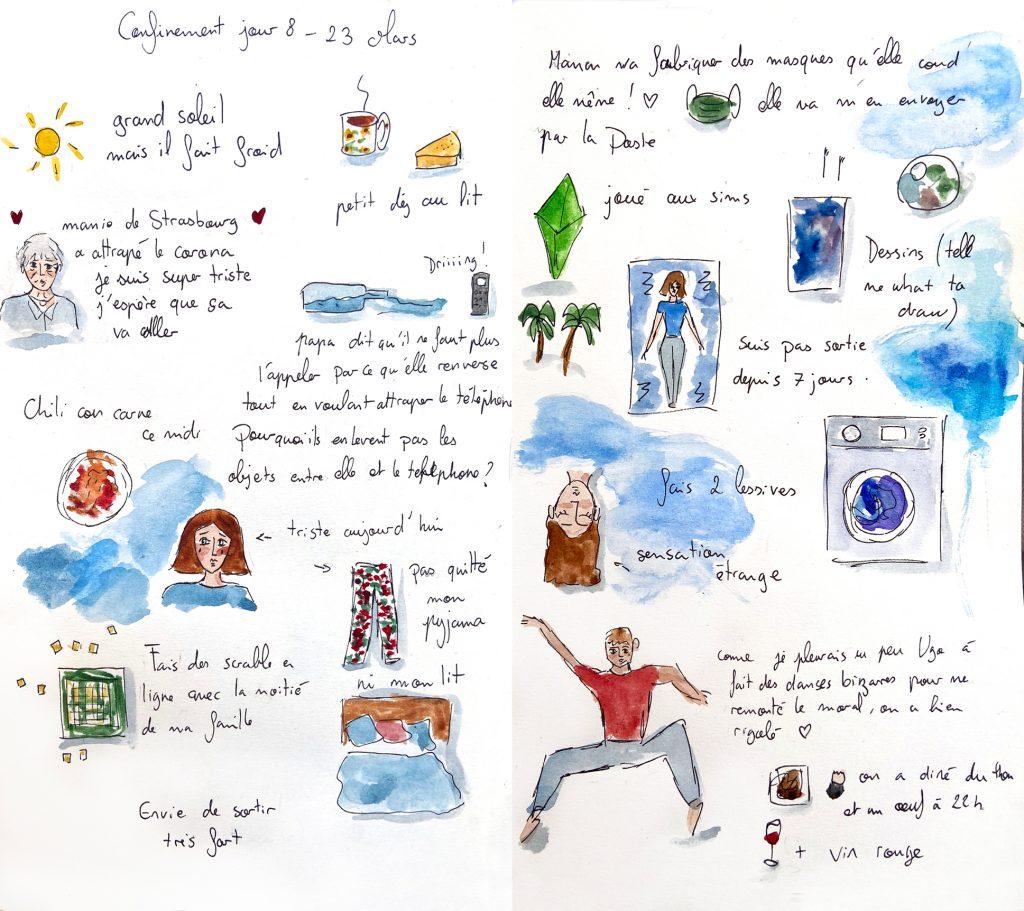 Confinement jour 8 - 23 Mars
grand soleil
mais il fait froid
petit déj au lit
manie de Strasbourg
a attrapé le corona
je suis super triste
j'espère que ça
va aller
Driiiing !
papa dit qu'il ne faut plus
l'appeler parce qu'elle renverse
tout en voulant attraper le téléphone
Pourquoi ils enlèvent pas les
objets entre elle et le téléphone ?
Chili con carne
ce midi
← triste aujourd'hui
→ pas quitté
mon
pyjama
ni mon lit
Fais des scrable en
ligne avec la moitié
de ma famille
Envie de sortir
très fort
Manon va fabriquer des masques qu'elle coud
elle même ! ♡ elle va m'en envoyer
par la Poste
joué aux sims
Dessins (tell
me what to
draw)
Suis pas sortie
depuis 7 jours.
fais 2 lessives
sensation
étrange
comme je pleurais un peu Ugo à
fait des danses bizares pour me
remonté le moral, on a bien
rigolé ♡
on a diné du thon
et un œuf à 22h
+ vin rouge